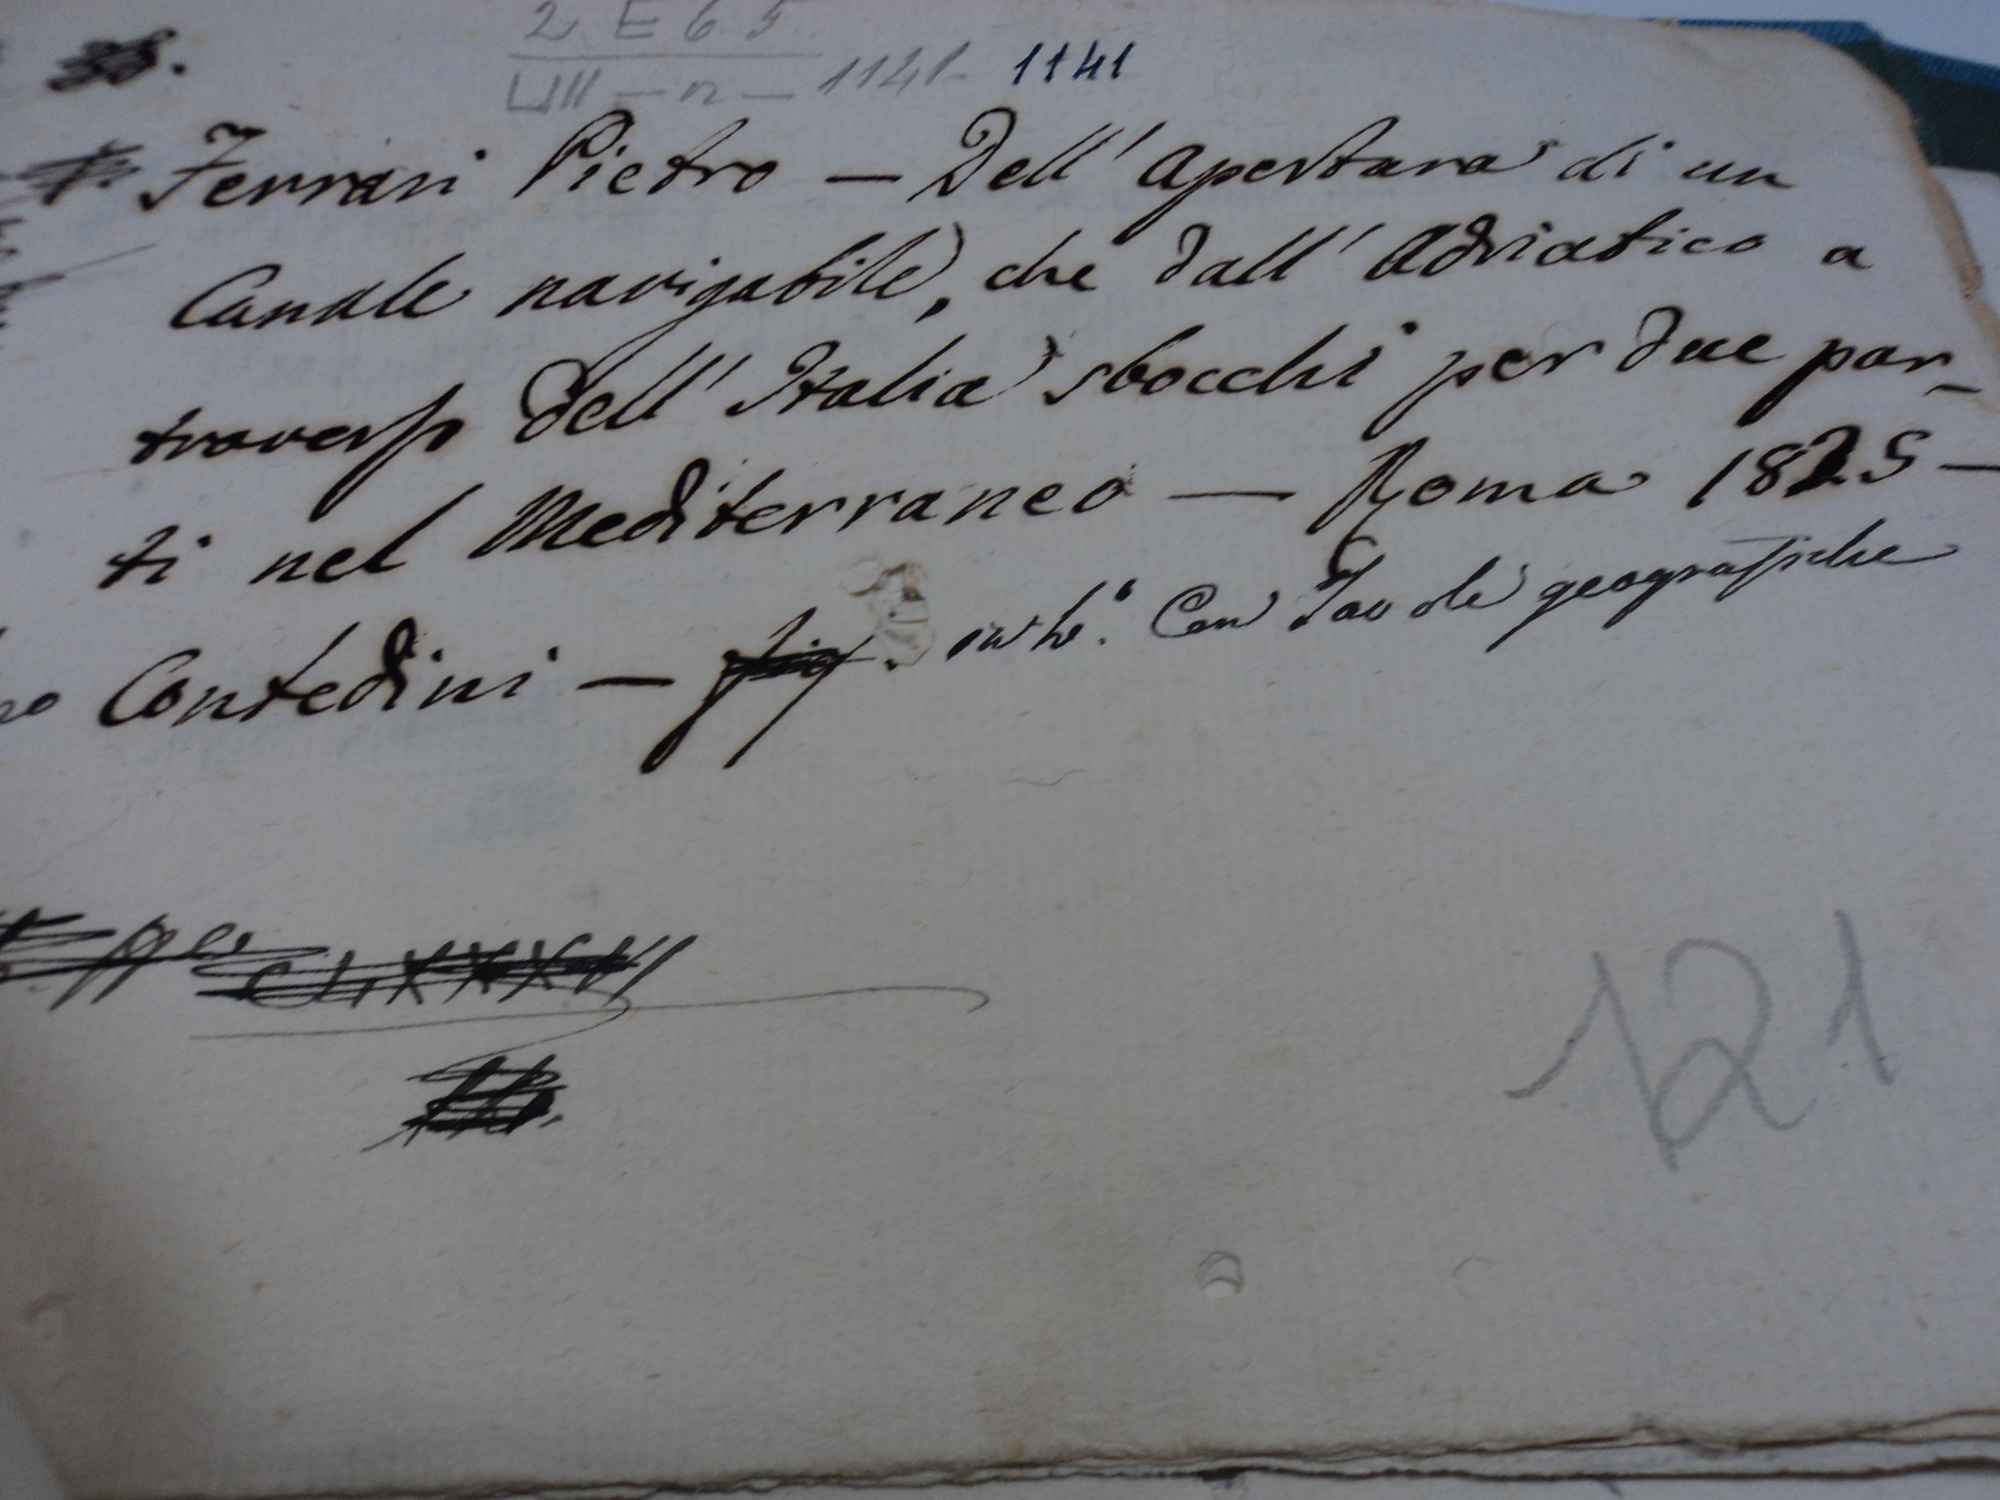 2 E 65
LVII - n - 1141 - 1141
Ferrari Pietro — Dell' Apertura di un
Canale navigabile, che dall' Adriatico a
traverso dell' Italia sbocchi per due par-
ti nel Mediterraneo — Roma 1825 —
Contedini — fig. in 4.° Con Tavole geografiche
CLXXXVI
121